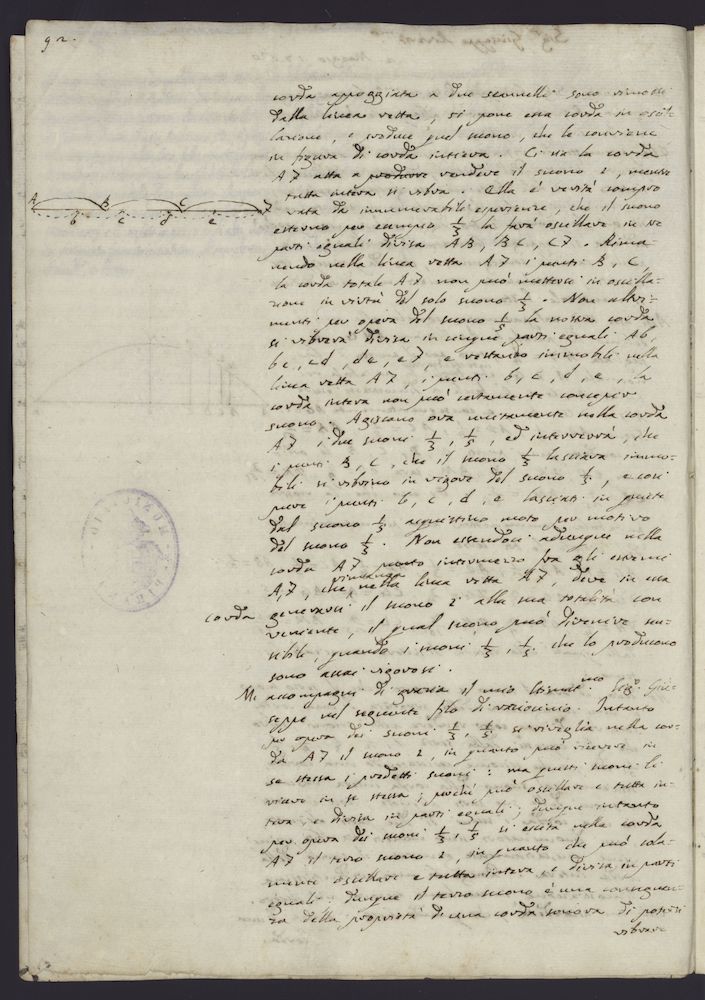 92.
corda appoggiata a due scannelli sono rimossi
dalla linea retta, si pone essa corda in oscil-
lazione, e produce quel suono, che le conviene
in figura di corda intiera. Ci sia la corda
A7 atta a produrre rendere il suono 1, mentre
tutta intera si vibra. Ella è verità compro
vata da innumerabili esperienze, che il suono
esterno per esempio 1/3 la farà oscillare in tre
parti eguali divisa AB, BC, C7. Rima-
nendo nella linea retta A7 i punti B, C,
la corda totale A7 non può mettersi in oscilla-
zione in virtù del solo suono 1/3. Non altri-
menti per opera del suono 1/5 la nostra corda
si vibrerà divisa in cinque parti eguali Ab,
bc, cd, de, e7, e restando immobili nella
linea retta A7, i punti b, c, d, e, la
corda intera non può certamente concepir
suono. Agiscano ora unitamente nella corda
A7 i due suoni 1/3, 1/5, ed interverrà, che
i punti B, C, che il suono 1/3 lasciava immo-
bili si vibrino in vigore del suono 1/5, e così
pure i punti b, c, d, e lasciati in quiete
dal suono 1/5 acquistino moto per motivo
del suono 1/3. Non essendoci adunque nella
corda A7 punto intermezzo fra gli estremi
A, 7, che rimanga nella linea retta A7, deve in essa
corda generarsi il suono 1 alla sua totalità con
veniente, il qual suono può divenire sen-
sibile, quando i suoni 1/3, 1/5 che lo producono
sono assai vigorosi.
Mi accompagni di grazia il mio Stimat.mo Sig.r Giu-
seppe nel seguente filo di raziocinio. Intanto
per opera dei suoni 1/3, 1/5 si risveglia nella cor-
da A7 il suono 1, in quanto può ricevere in
se stessa i predetti suoni: ma questi suoni li
riceve in se stessa, perchè può oscillare e tutta in-
tera, e divisa in parti eguali; dunque intanto
per opera dei suoni 1/3, 1/5 si eccita nella corda
A7 il terzo suono 1, in quanto che può sola-
mente oscillare e tutta intera, e divisa in parti
eguali: dunque il terzo suono è una conseguen-
za della proprietà di una corda sonora di potersi
vibrare
A B C 7
b c d e